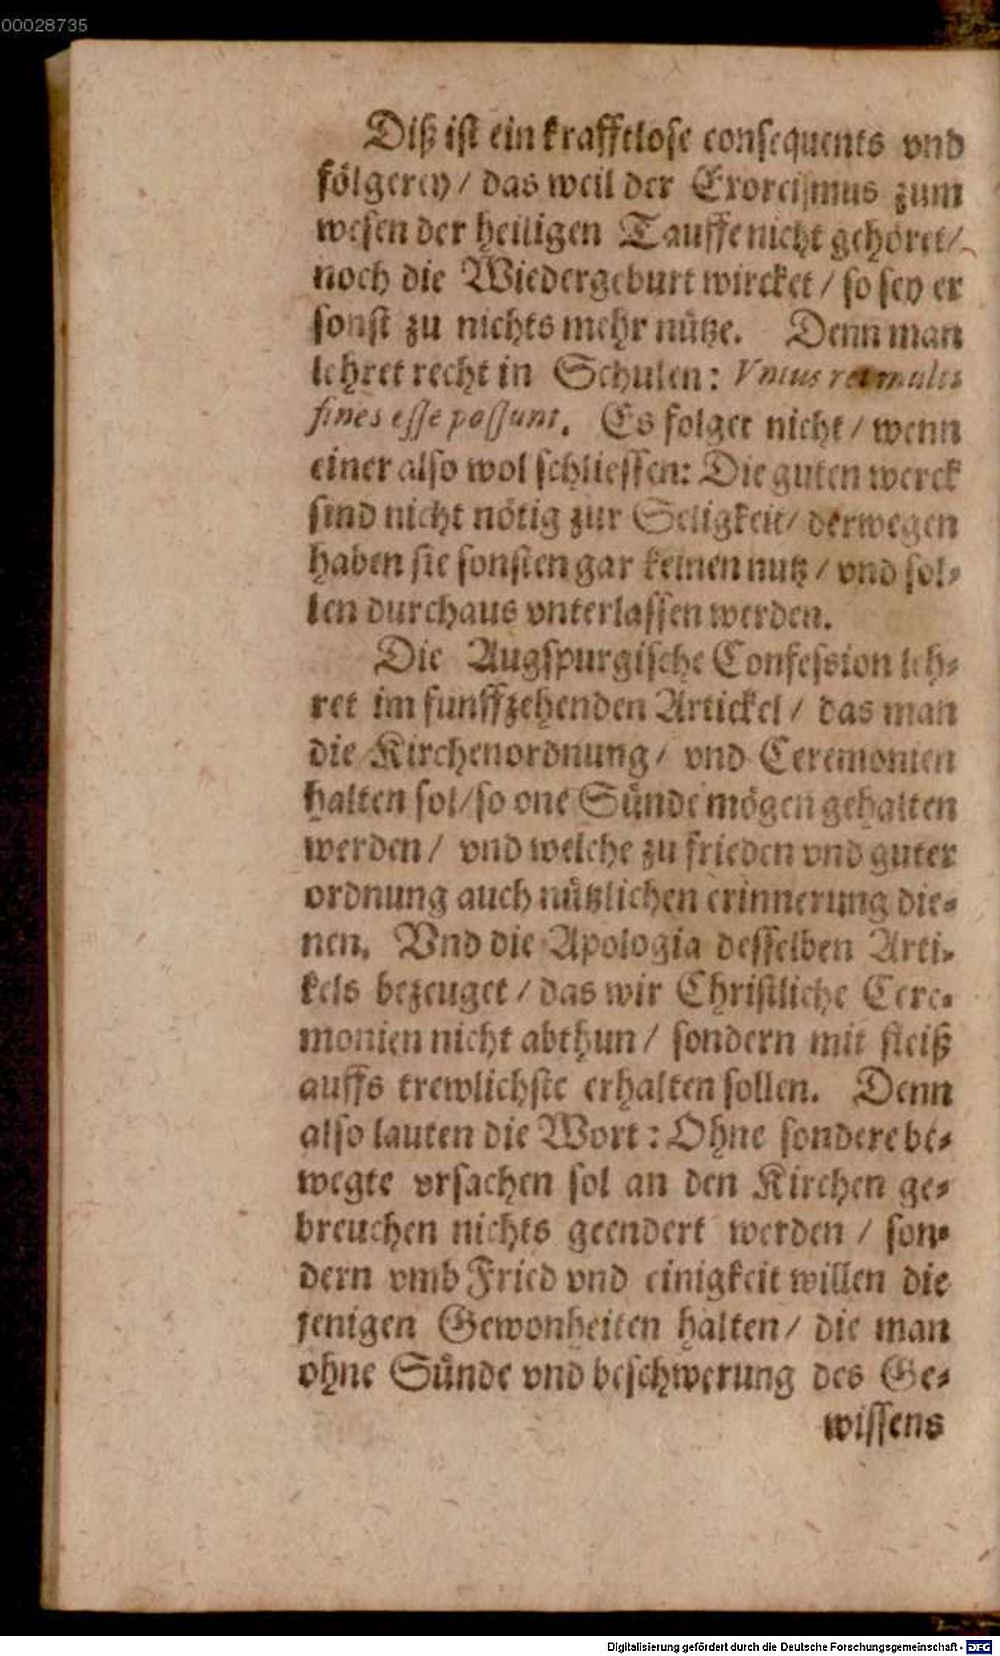 00028735
Diß ist ein krafftlose consequents vnd
fölgerey / das weil der Exorcismus zum
wesen der heiligen Tauffe nicht gehöret /
noch die Wiedergeburt wircket / so sey er
sonst zu nichts mehr nütze. Denn man
lehret recht in Schulen: Vnius rei multi
fines esse possunt. Es folget nicht / wenn
einer also wol schliessen: Die guten werck
sind nicht nötig zur Seligkeit / derwegen
haben sie sonsten gar keinen nutz / vnd sol-
len durchaus vnterlassen werden.
Die Augspurgische Confession leh-
ret im funffzehenden Artickel / das man
die Kirchenordnung / vnd Ceremonien
halten sol / so one Sünde mögen gehalten
werden / vnd welche zu frieden vnd guter
ordnung auch nützlichen erinnerung die-
nen. Vnd die Apologia desselben Arti-
kels bezeuget / das wir Christliche Cere-
monien nicht abthun / sondern mit fleiß
auffs trewlichste erhalten sollen. Denn
also lauten die Wort: Ohne sondere be-
wegte vrsachen sol an den Kirchen ge-
breuchen nichts geendert werden / son-
dern vmb Fried vnd einigkeit willen die
jenigen Gewonheiten halten / die man
ohne Sünde vnd beschwerung des Ge-
wissens
Digitalisierung gefördert durch die Deutsche Forschungsgemeinschaft - DFG